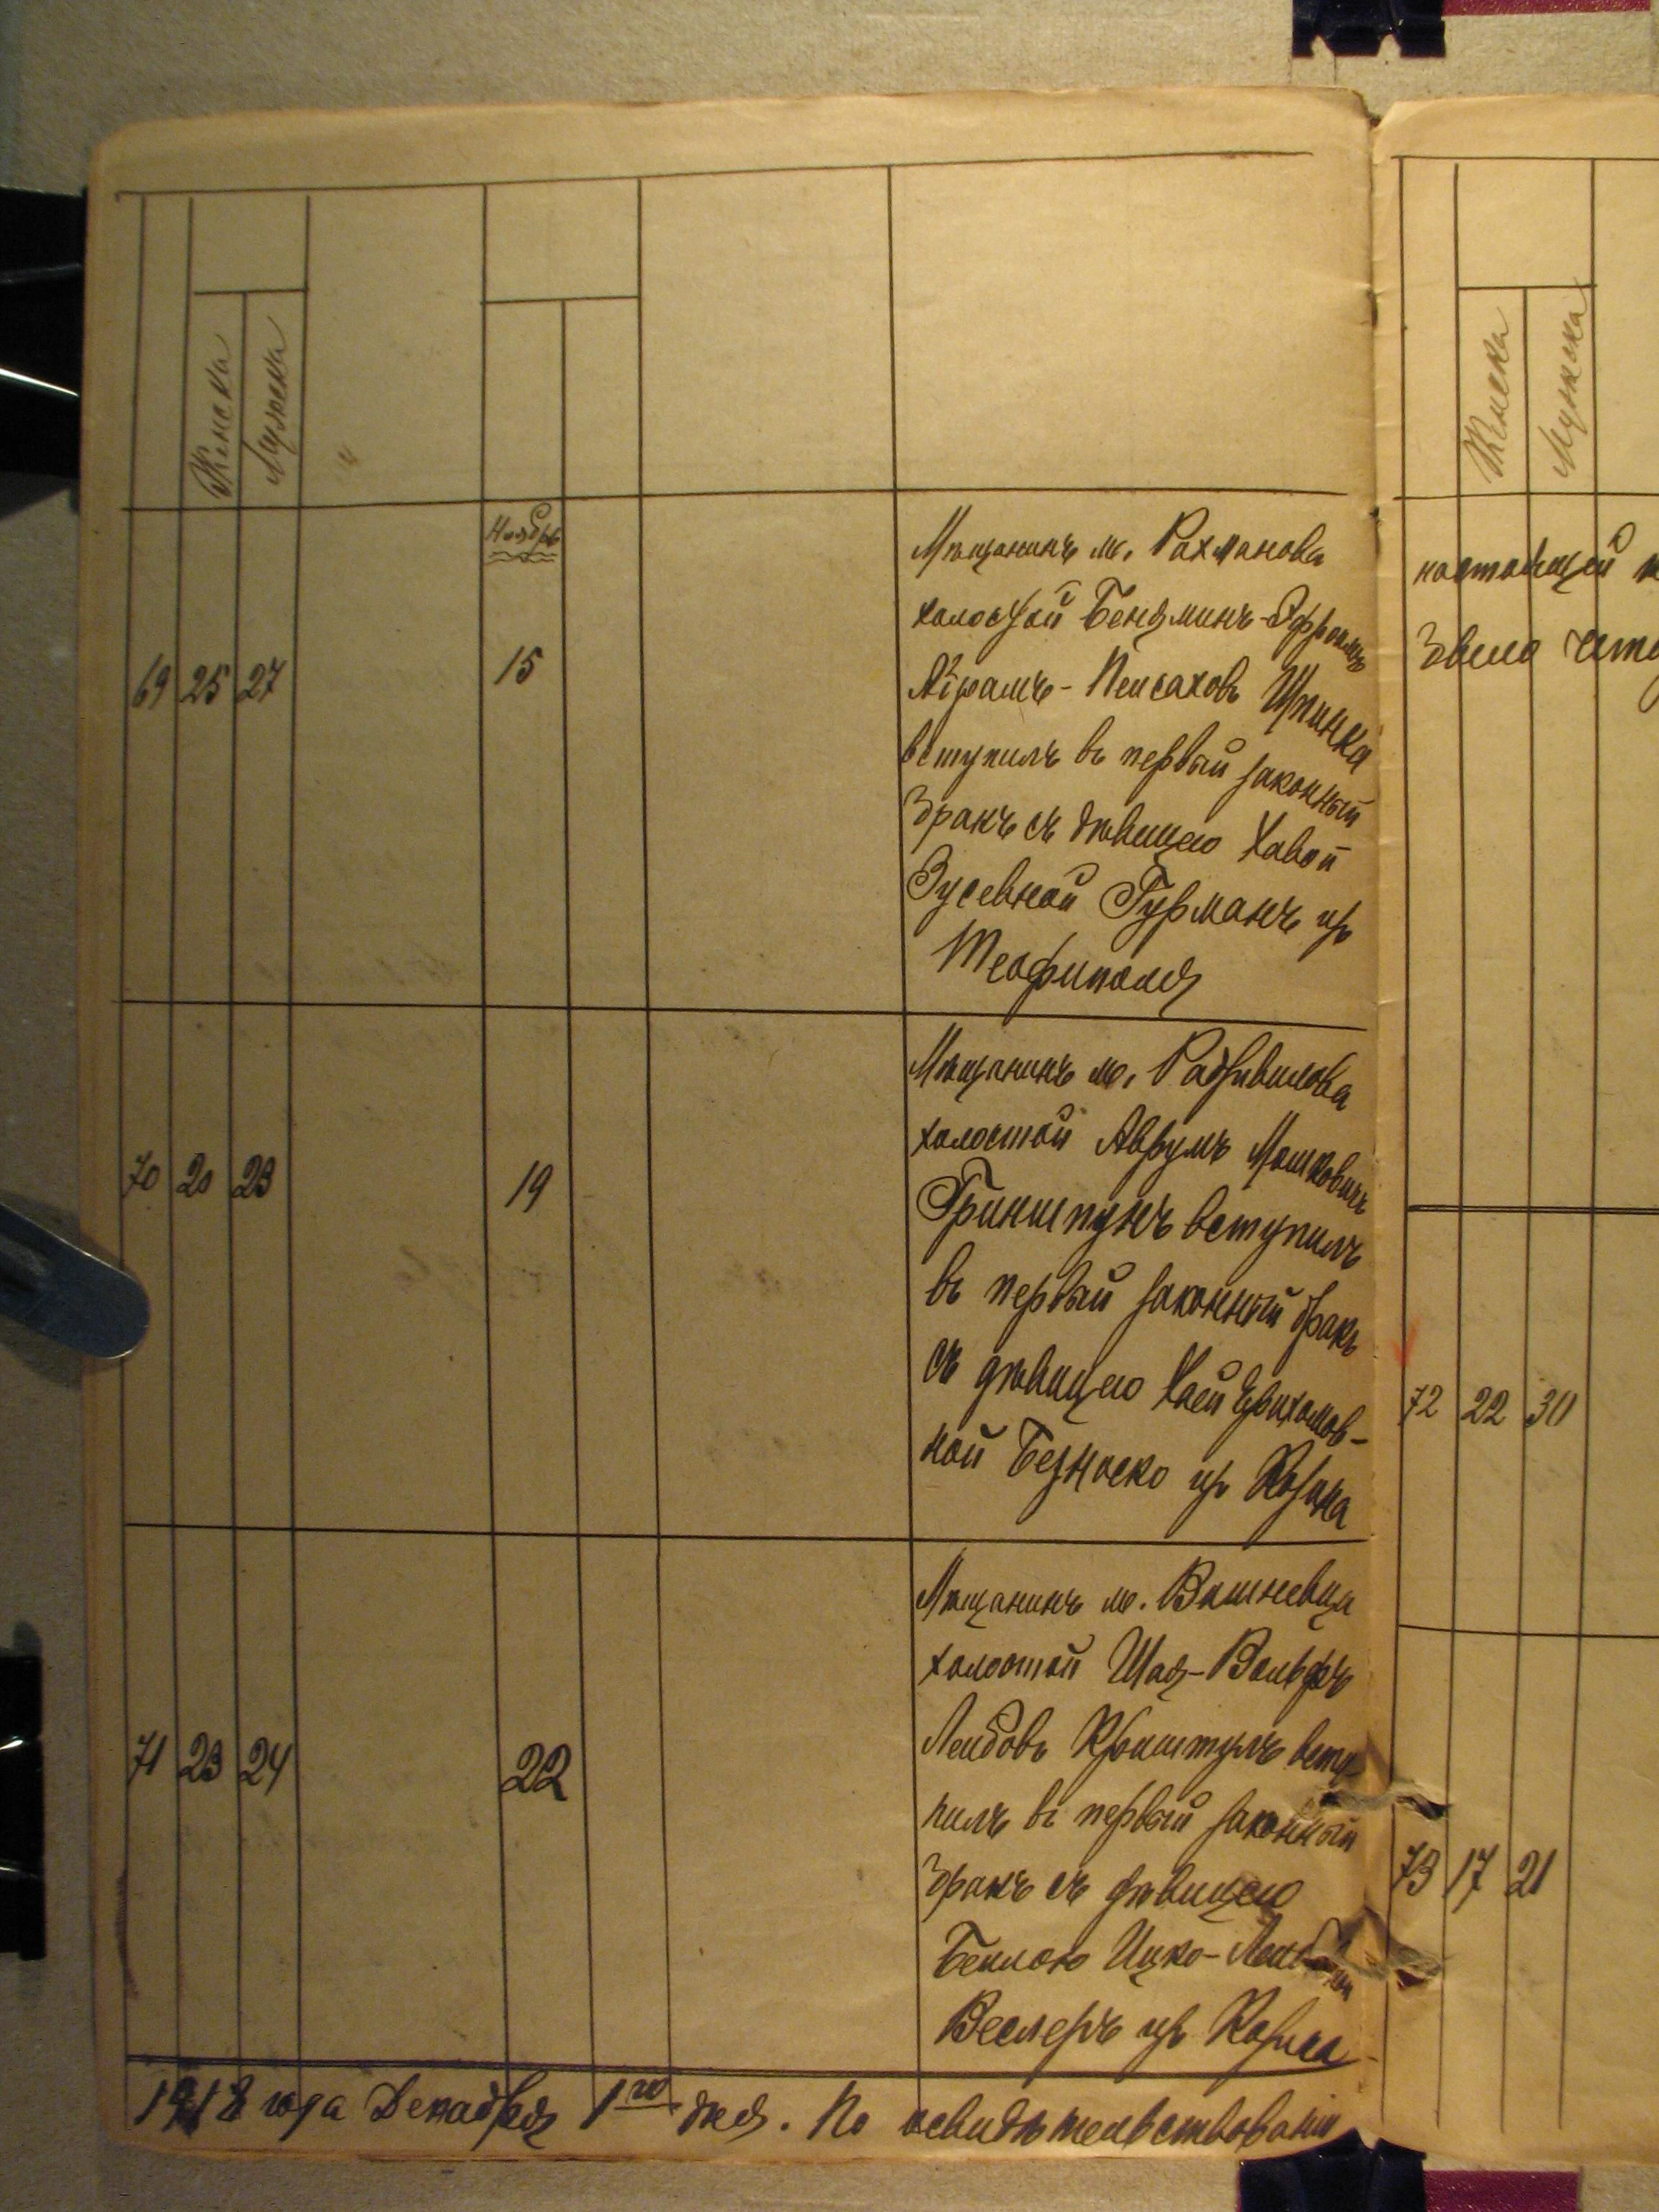 Женска
Мужска
Ноябрь
69 25 27 15
Мѣщанинъ м. Рахманова
холостой Беняминъ-Эфроимъ
Абрамъ-Пейсаховъ Шпинка
вступилъ въ первый законный
бракъ съ дѣвицею Хавой
Зусевной Гурманъ изъ
Теофиполя
70 20 23 19
Мѣщанинъ м. Радзивилова
холостой Аврумъ Мошковичъ
Гриншпунъ вступилъ
въ первый законный бракъ
съ дѣвицею Хаей
ной Безноско изъ Козина
71 23 24 22
Мѣщанинъ м. Вишневца
холостой Шая-Вольфъ
Лейбовъ Криштулъ всту
пилъ въ первый законный
бракъ съ дѣвицею
Бейлою Ицко-
Веслеръ изъ Козина
1918 года Декабря 1го дня. По освидѣтельствованіи
Женска
Мужска
настоящей
72 22 30
73 17 21